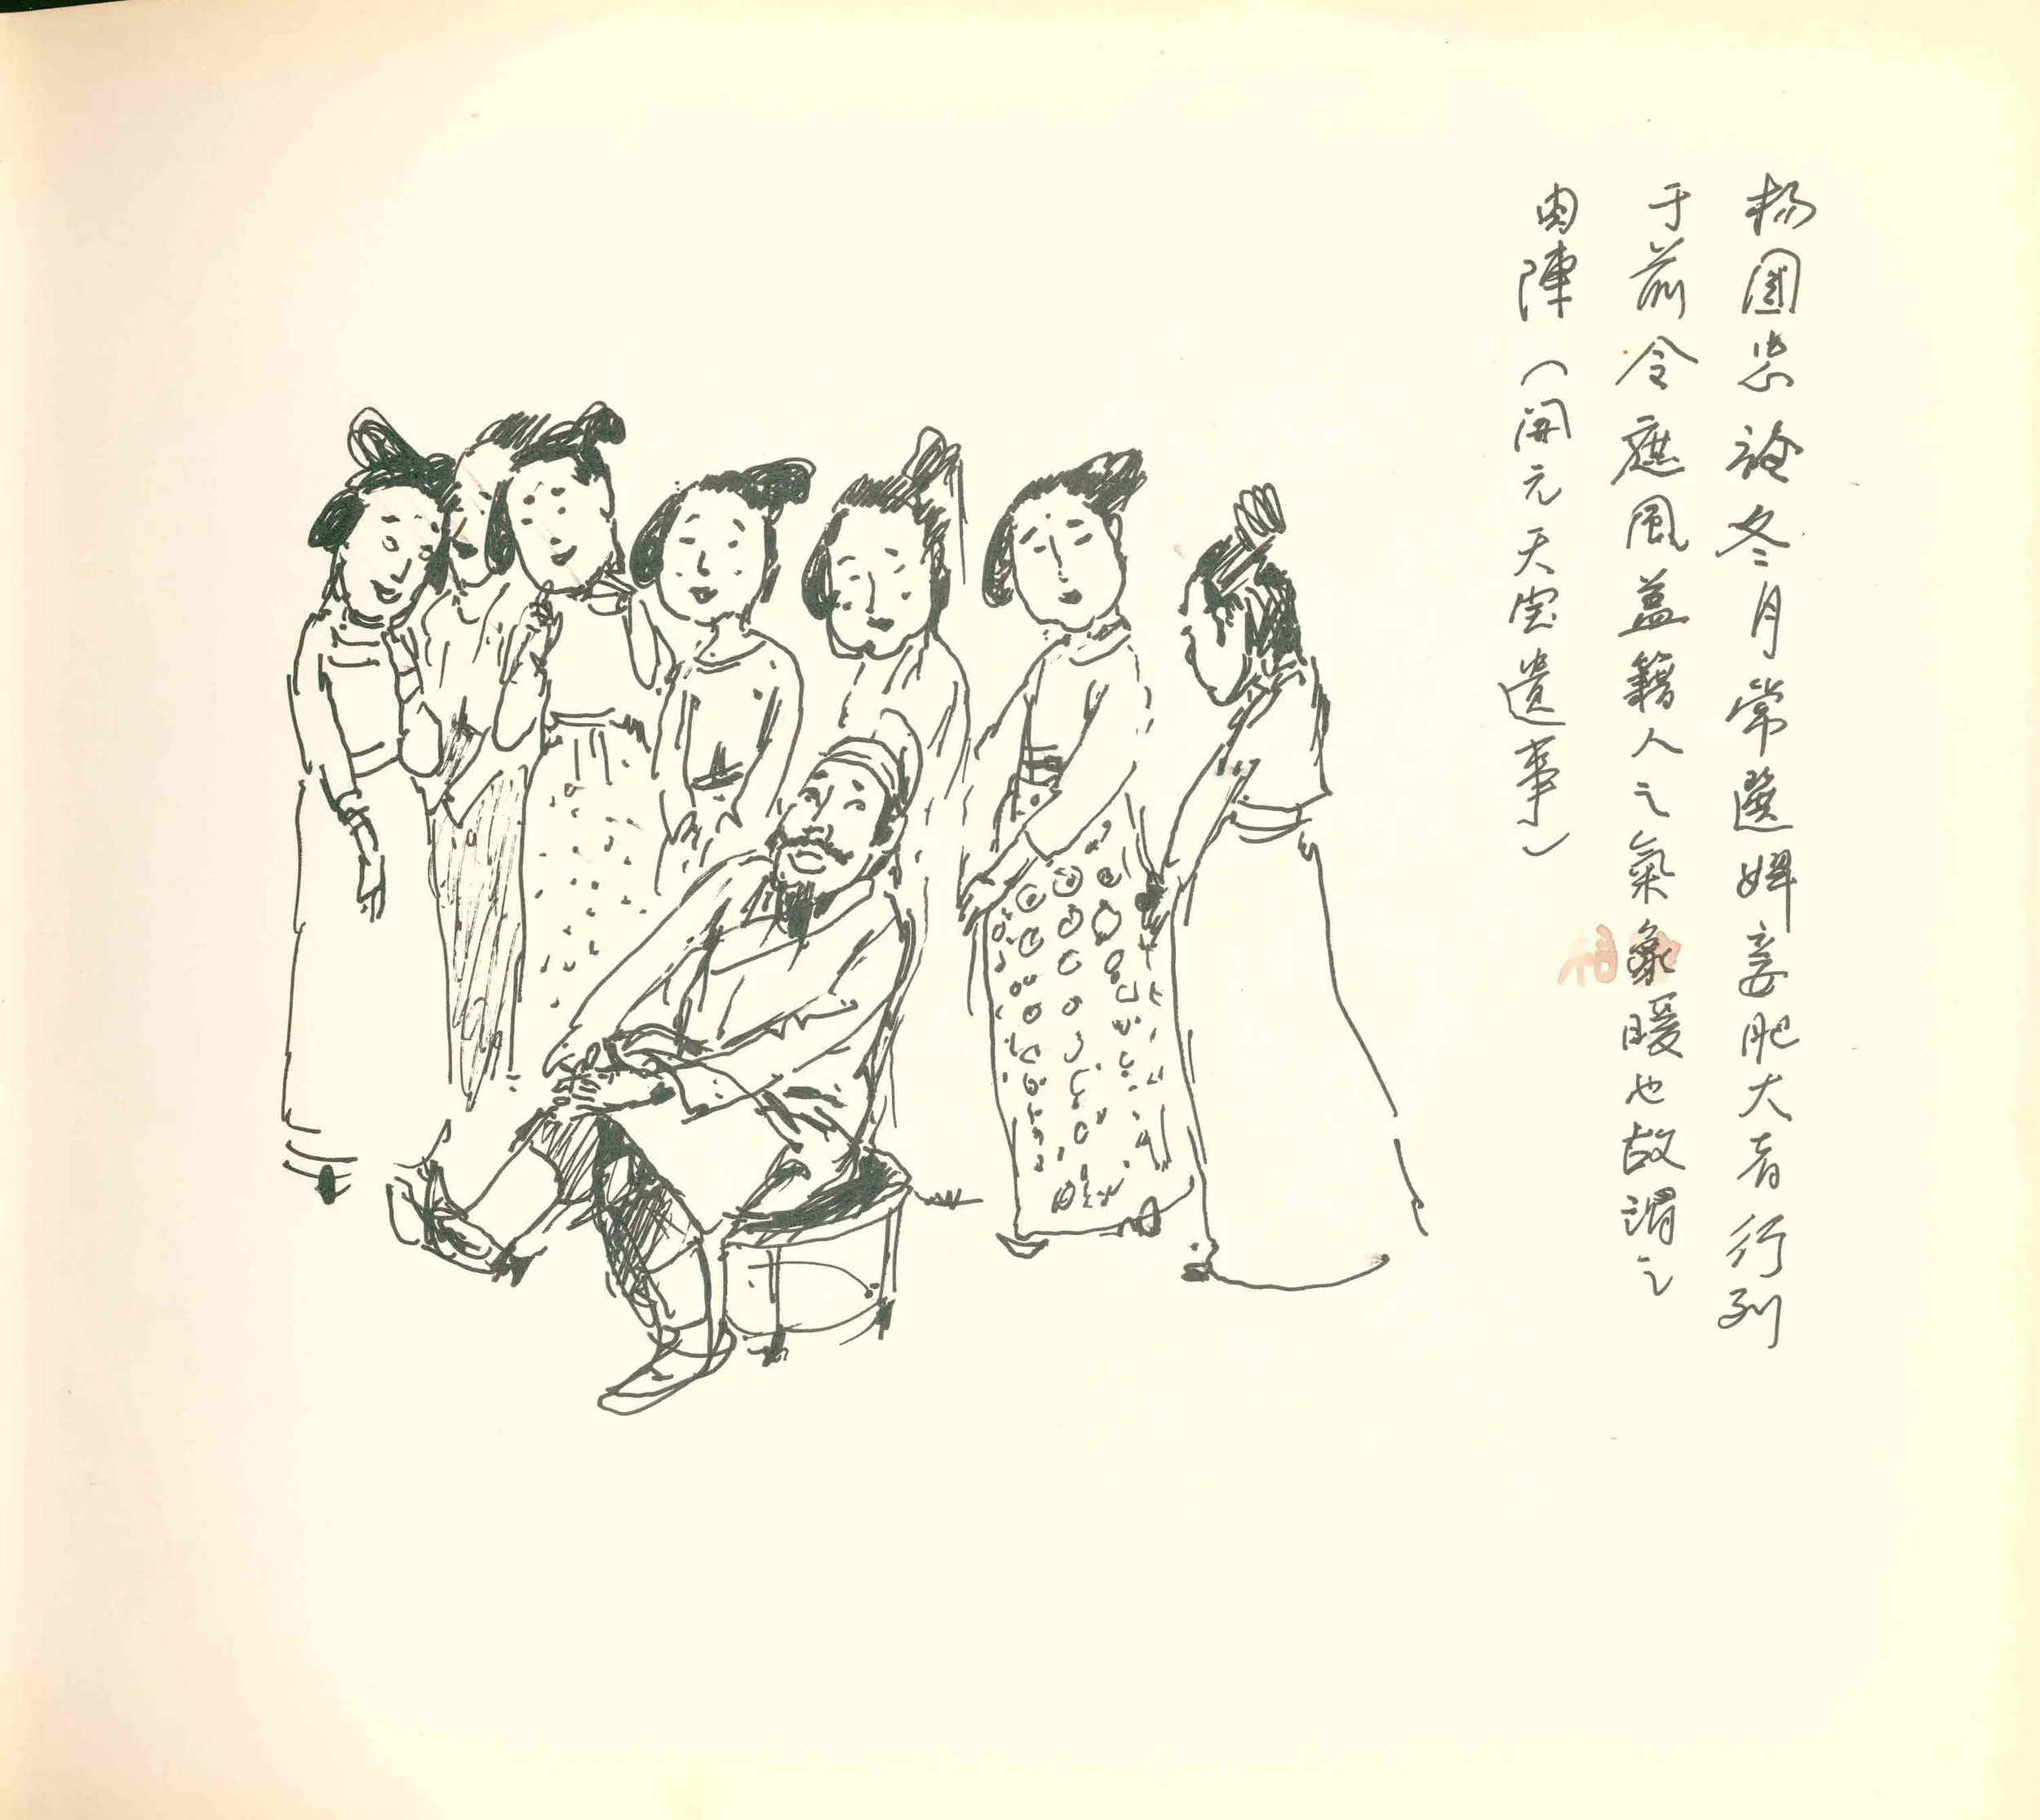 杨國忠於冬月常選婢妾肥大者行列
于前令遮風蓋籍人之氣象暖也故謂之
肉陣（開元天宝遺事）